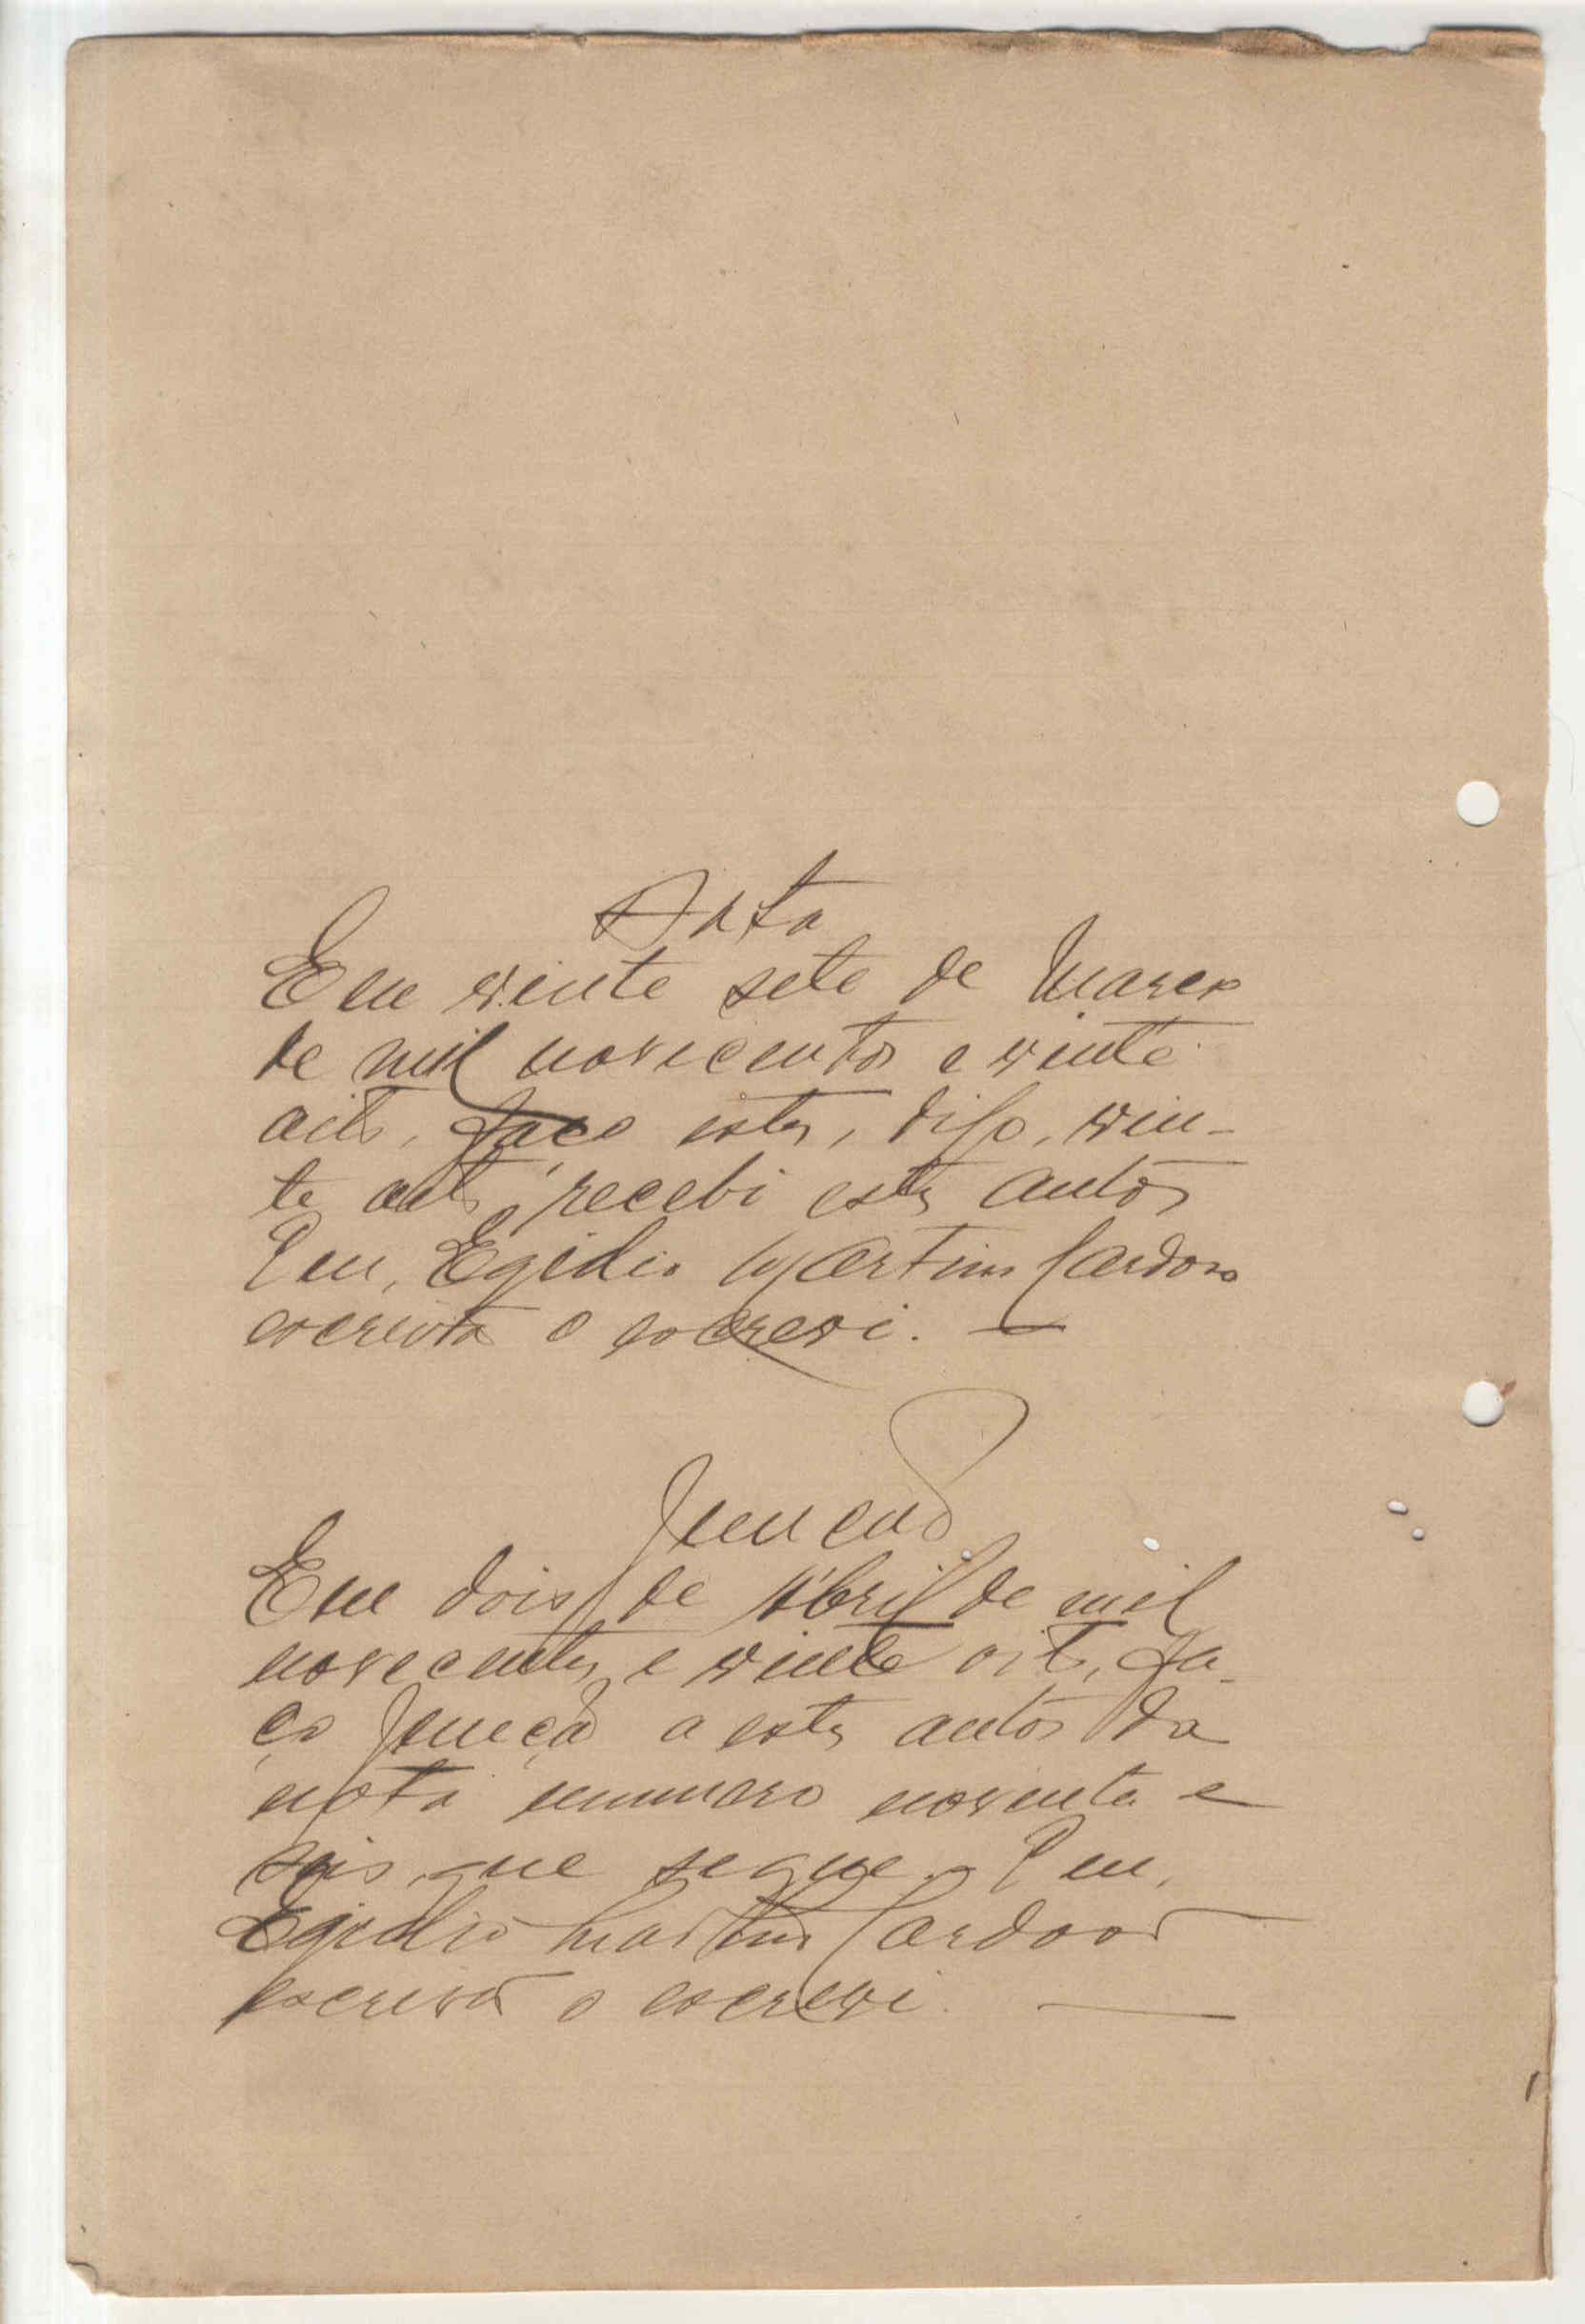 Data
Em vinte sete de Março
de mil novecentos e vinte
oito, faço estes, digo, vin-
te oito, recebi estes autos
Eu, Egidio Martins Cardoso
escrivão o escrevi. —
Juncção
Em dois de Abril de mil
novecentos e vinte oito, fa-
ço Juncção a estes autos da
nota numero noventa e
seis, que segue. Eu,
Egidio Martins Cardoso
escrivão o escrevi. —